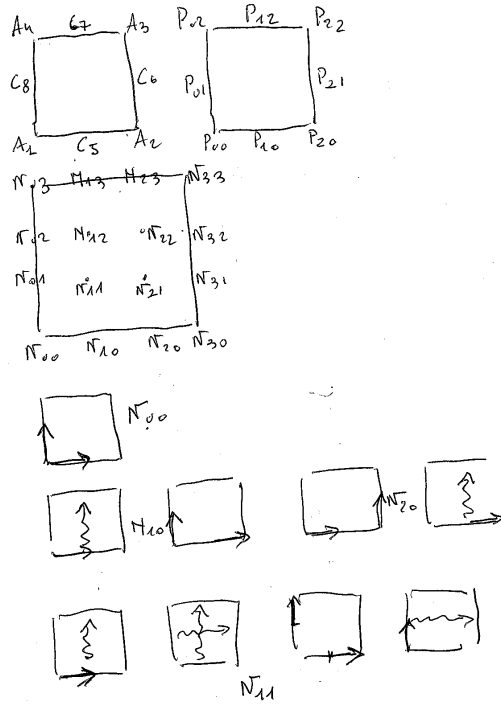 A4 C7 A3 P02 P12 P22
C8 C6 P01 P21
A1 C5 A2 P00 P10 P20
N03 N13 N23 N33
N02 N12 N22 N32
N01 N11 N21 N31
N00 N10 N20 N30
N00
N10 N20
N11